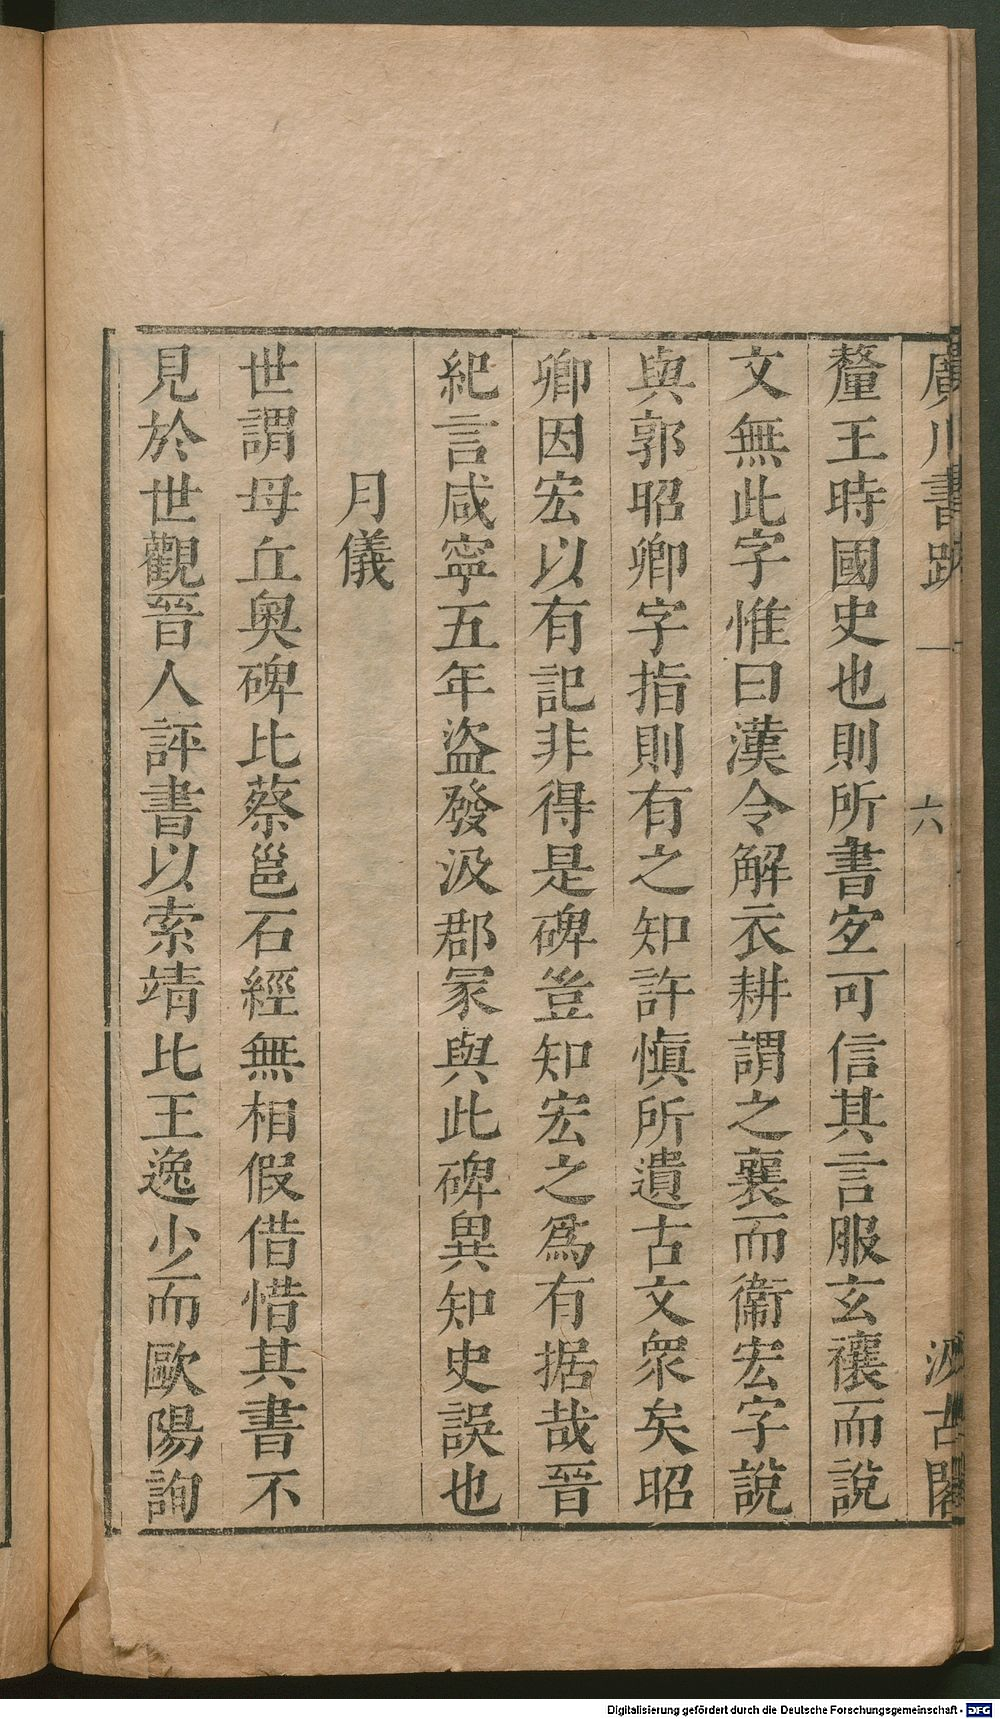 廣川書跋 六 汲古閣
釐王時國史也則所書㝎可信其言服玄禳而說
文無此字惟曰漢令解衣耕謂之襄而衞宏字說
與郭昭卿字指則有之知許愼所遺古文衆矣昭
卿因宏以有記非得是碑豈知宏之爲有据哉晉
紀言咸寧五年盜發汲郡冢與此碑異知史誤也
月儀
世謂母丘奧碑比蔡邕石經無相假借惜其書不
見於世觀晉人評書以索靖比王逸少而歐陽詢
Digitalisierung gefördert durch die Deutsche Forschungsgemeinschaft - DFG